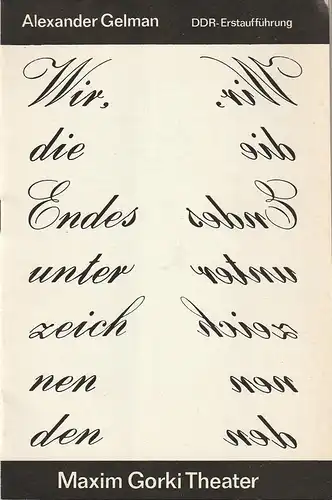 Alexander Gelman DDR-Erstaufführung
Wir, Wir,
die die
Endes Endes
unter unter
zeich zeich
nen nen
den den
Maxim Gorki Theater